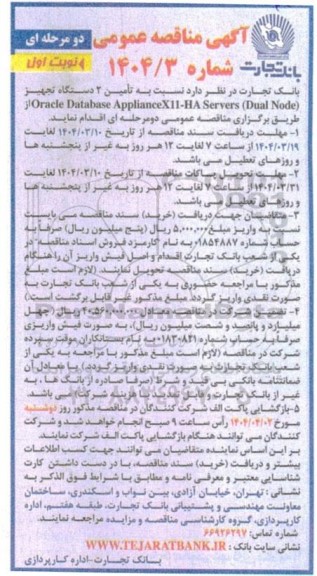 آگهی مناقصه عمومی
دو مرحله ای
شماره ۱۴۰۴/۳
نوبت اول
بانک تجارت
بانک تجارت در نظر دارد نسبت به تأمین ۲ دستگاه تجهیز
Oracle Database ApplianceX11-HA Servers (Dual Node) از
طریق برگزاری مناقصه عمومی دومرحله ای اقدام نماید.
۱- مهلت دریافت اسناد مناقصه از تاریخ ۱۴۰۴/۰۳/۱۰ لغایت
۱۴۰۴/۰۳/۱۹ از ساعت ۷ لغایت ۱۳ هر روز به غیر از پنجشنبه ها
و روزهای تعطیل می باشد.
۲- مهلت تحویل پاکات مناقصه از تاریخ ۱۴۰۴/۰۳/۱۰ لغایت
۱۴۰۴/۰۳/۳۱ از ساعت ۷ لغایت ۱۳ هر روز به غیر از پنجشنبه ها
و روزهای تعطیل می باشد.
۳- متقاضیان جهت دریافت (خرید) سند مناقصه می بایست
نسبت به واریز مبلغ ۵،۰۰۰،۰۰۰ ریال (پنج میلیون ریال) صرفاً به
حساب شماره ۰۱۸۵۴۸۸۷ به نام کارمزد فروش اسناد مناقصه در
یکی از شعب بانک تجارت اقدام و اصل فیش واریز آن را هنگام
دریافت (خرید) سند مناقصه تحویل نمایند. (لازم است مبلغ
مذکور با مراجعه حضوری به یکی از شعب بانک تجارت به
صورت نقدی واریز گردد. مبلغ مذکور غیر قابل برگشت است)
۴- تضمین شرکت در مناقصه معادل ریال (چهل
میلیارد و پانصد و شصت میلیون ریال)، به صورت فیش واریزی
صرفاً به حساب شماره به نام بستانکاران موقت سپرده
شرکت در مناقصه (لازم است مبلغ مذکور با مراجعه به یکی از
شعب بانک تجارت به صورت نقدی واریز گردد) یا معادل آن
ضمانتنامه بانکی بی قید و شرط (صرفا صادره از بانک ها ، به
غیر از بانک تجارت و می باشد.
۵- بازگشایی پاکت الف شرکت کنندگان در مناقصه مذکور روز دوشنبه
مورخ ۱۴۰۴/۰۴/۰۲ رأس ساعت ۹ صبح انجام خواهد شد و شرکت
کنندگان می توانند هنگام بازگشایی پاکت الف شرکت نمایند.
بر این اساس نماینده متقاضیان می توانند جهت کسب اطلاعات
بیشتر و دریافت (خرید) سند مناقصه، با در دست داشتن کارت
شناسایی معتبر و معرفی نامه و مطابق با شرایط فوق الذکر به
نشانی : تهران، خیابان آزادی، بین نواب و اسکندری، ساختمان
معاونت مهندسی و پشتیبانی بانک تجارت، طبقه هفتم، اداره
کارپردازی، گروه کارشناسی مناقصه و مزایده مراجعه نمایند.
شماره تماس: ۶۶۹۲۶۲۹۷
نشانی سایت بانک : WWW.TEJARATBANK.IR
بانک تجارت-اداره کارپردازی